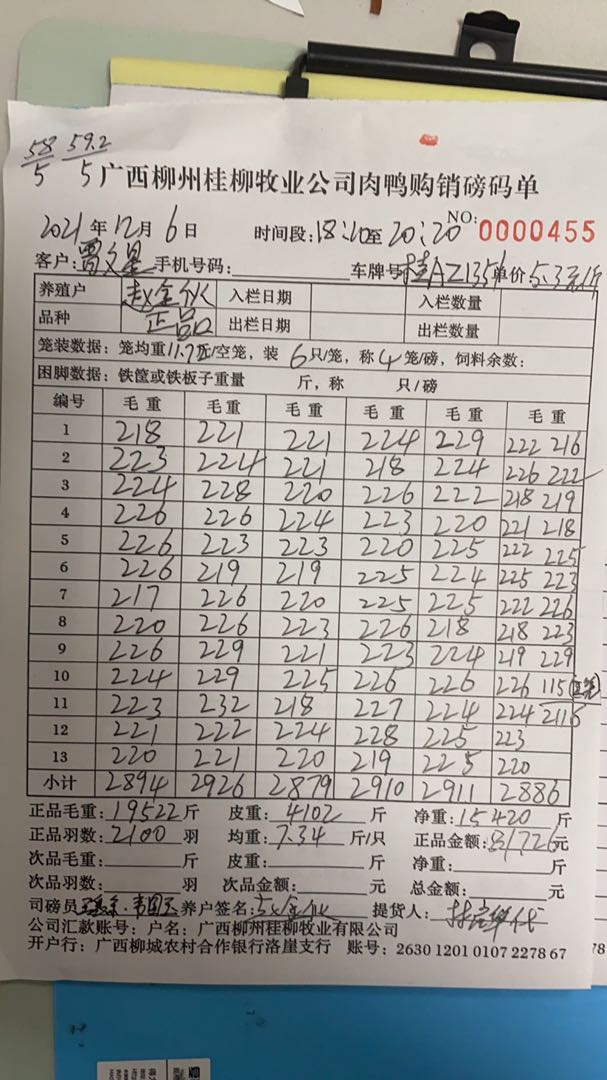 58/5 59.2/5
广西柳州桂柳牧业公司肉鸭购销磅码单
2021年12月6日 时间段:18:20至20:20 NO: 0000455
客户: 手机号码: 车牌号桂AZ1351 单价:5.3元/斤
养殖户 赵金伙 入栏日期 入栏数量
品种 正品 出栏日期 出栏数量
笼装数据:笼均重11.7斤/空笼,装6只/笼,称4笼/磅,饲料余数:
困脚数据:铁筐或铁板子重量 斤,称 只/磅
编号 毛重 毛重 毛重 毛重 毛重 毛重
1 218 221 221 224 229 222 216
2 223 224 221 218 224 226 222
3 224 228 220 226 222 218 219
4 226 226 224 223 220 221 218
5 226 223 223 220 225 222 225
6 226 219 219 225 224 225 223
7 217 226 220 225 225 222 226
8 220 226 223 226 218 218 223
9 226 229 221 223 224 219 229
10 224 229 225 226 226 226 115
11 223 232 218 227 224 224 2116
12 221 222 224 228 225 223
13 220 221 220 219 225 220
小计 2894 2926 2879 2910 2911 2886
正品毛重:19522斤 皮重:4102斤 净重:15420斤
正品羽数:2100羽 均重:7.34斤/只 正品金额:81726元
次品毛重: 斤 皮重: 斤 净重: 斤
次品羽数: 羽 次品金额: 元 总金额: 元
司磅员 养户签名: 赵金伙 提货人:
公司汇款账号:户名:广西柳州桂柳牧业有限公司
开户行:广西柳城农村合作银行洛崖支行 账号:2630 1201 0107 2278 67
78